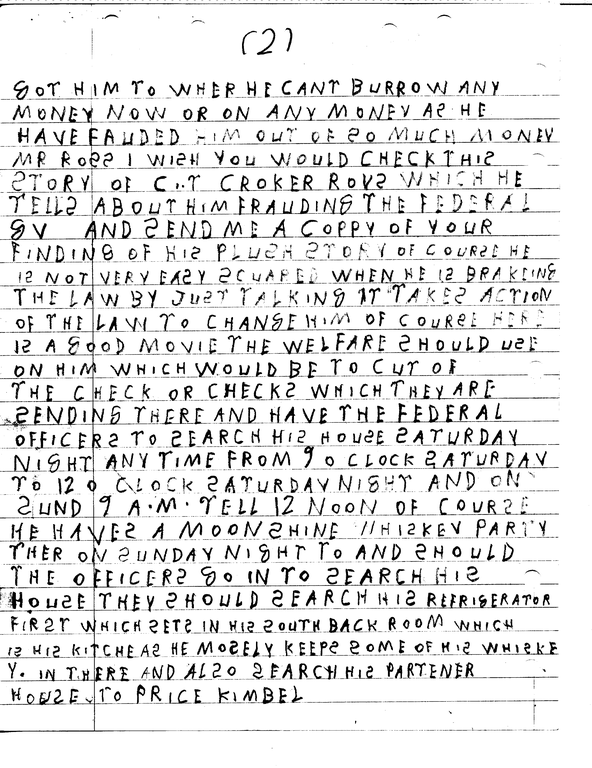 (2)
GOT HIM TO WHER HE CANT BURROW ANY
MONEY NOW OR ON ANY MONEY AS HE
HAVE FAUDED HIM OUT OF SO MUCH MONEY
MR ROSS I WISH YOU WOULD CHECK THIS
STORY OF C..T CROKER ROYS WHICH HE
TELLS ABOUT HIM FRAUDING THE FEDERAL
GV AND SEND ME A COPPY OF YOUR
FINDING OF HIS PLUSH STORY OF COURSE HE
IS NOT VERY EASY SCUARED WHEN HE IS BRAKEING
THE LAW BY JUST TALKING IT TAKES ACTION
OF THE LAW TO CHANGE HIM OF COURSE HERE
IS A GOOD MOVIE THE WELFARE SHOULD USE
ON HIM WHICH WOULD BE TO CUT OF
THE CHECK OR CHECKS WHICH THEY ARE
SENDING THERE AND HAVE THE FEDERAL
OFFICERS TO SEARCH HIS HOUSE SATURDAY
NIGHT ANY TIME FROM 9 O CLOCK SATURDAY
TO 12 O CLOCK SATURDAY NIGHT AND ON
SUND 9 A.M. TELL 12 NOON OF COURSE
HE HAVES A MOONSHINE WHISKEY PARTY
THER ON SUNDAY NIGHT TO AND SHOULD
THE OFFICERS GO IN TO SEARCH HIS
HOUSE THEY SHOULD SEARCH HIS REFRIGERATOR
FIRST WHICH SETS IN HIS SOUTH BACK ROOM WHICH
IS HIS KITCHE AS HE MOSELY KEEPS SOME OF HIS WHISKE
Y. IN THERE AND ALSO SEARCH HIS PARTENER
HOUSE TO PRICE KIMBEL